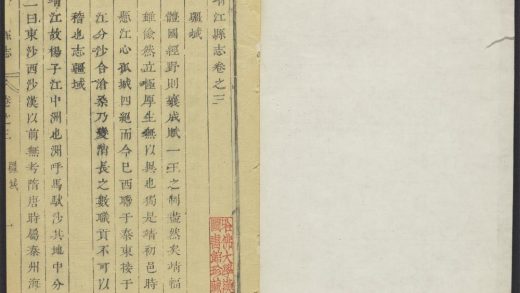 靖江縣志卷之三
疆域
體國經野則壤成賦一王之制盡然矣靖福
雖倹然立極厚生無以異也獨是靖初邑時
懸江心孤城四絕而今巳西聯于泰東接于
江分沙合滄桑乃變消長之數職貢不可以
稽也志疆域
靖江故楊子江中洲也洲呼馬馱沙其地中分
二曰東沙西沙漢以前無考隋唐時屬泰州海
縣志
卷之三
疆域
一